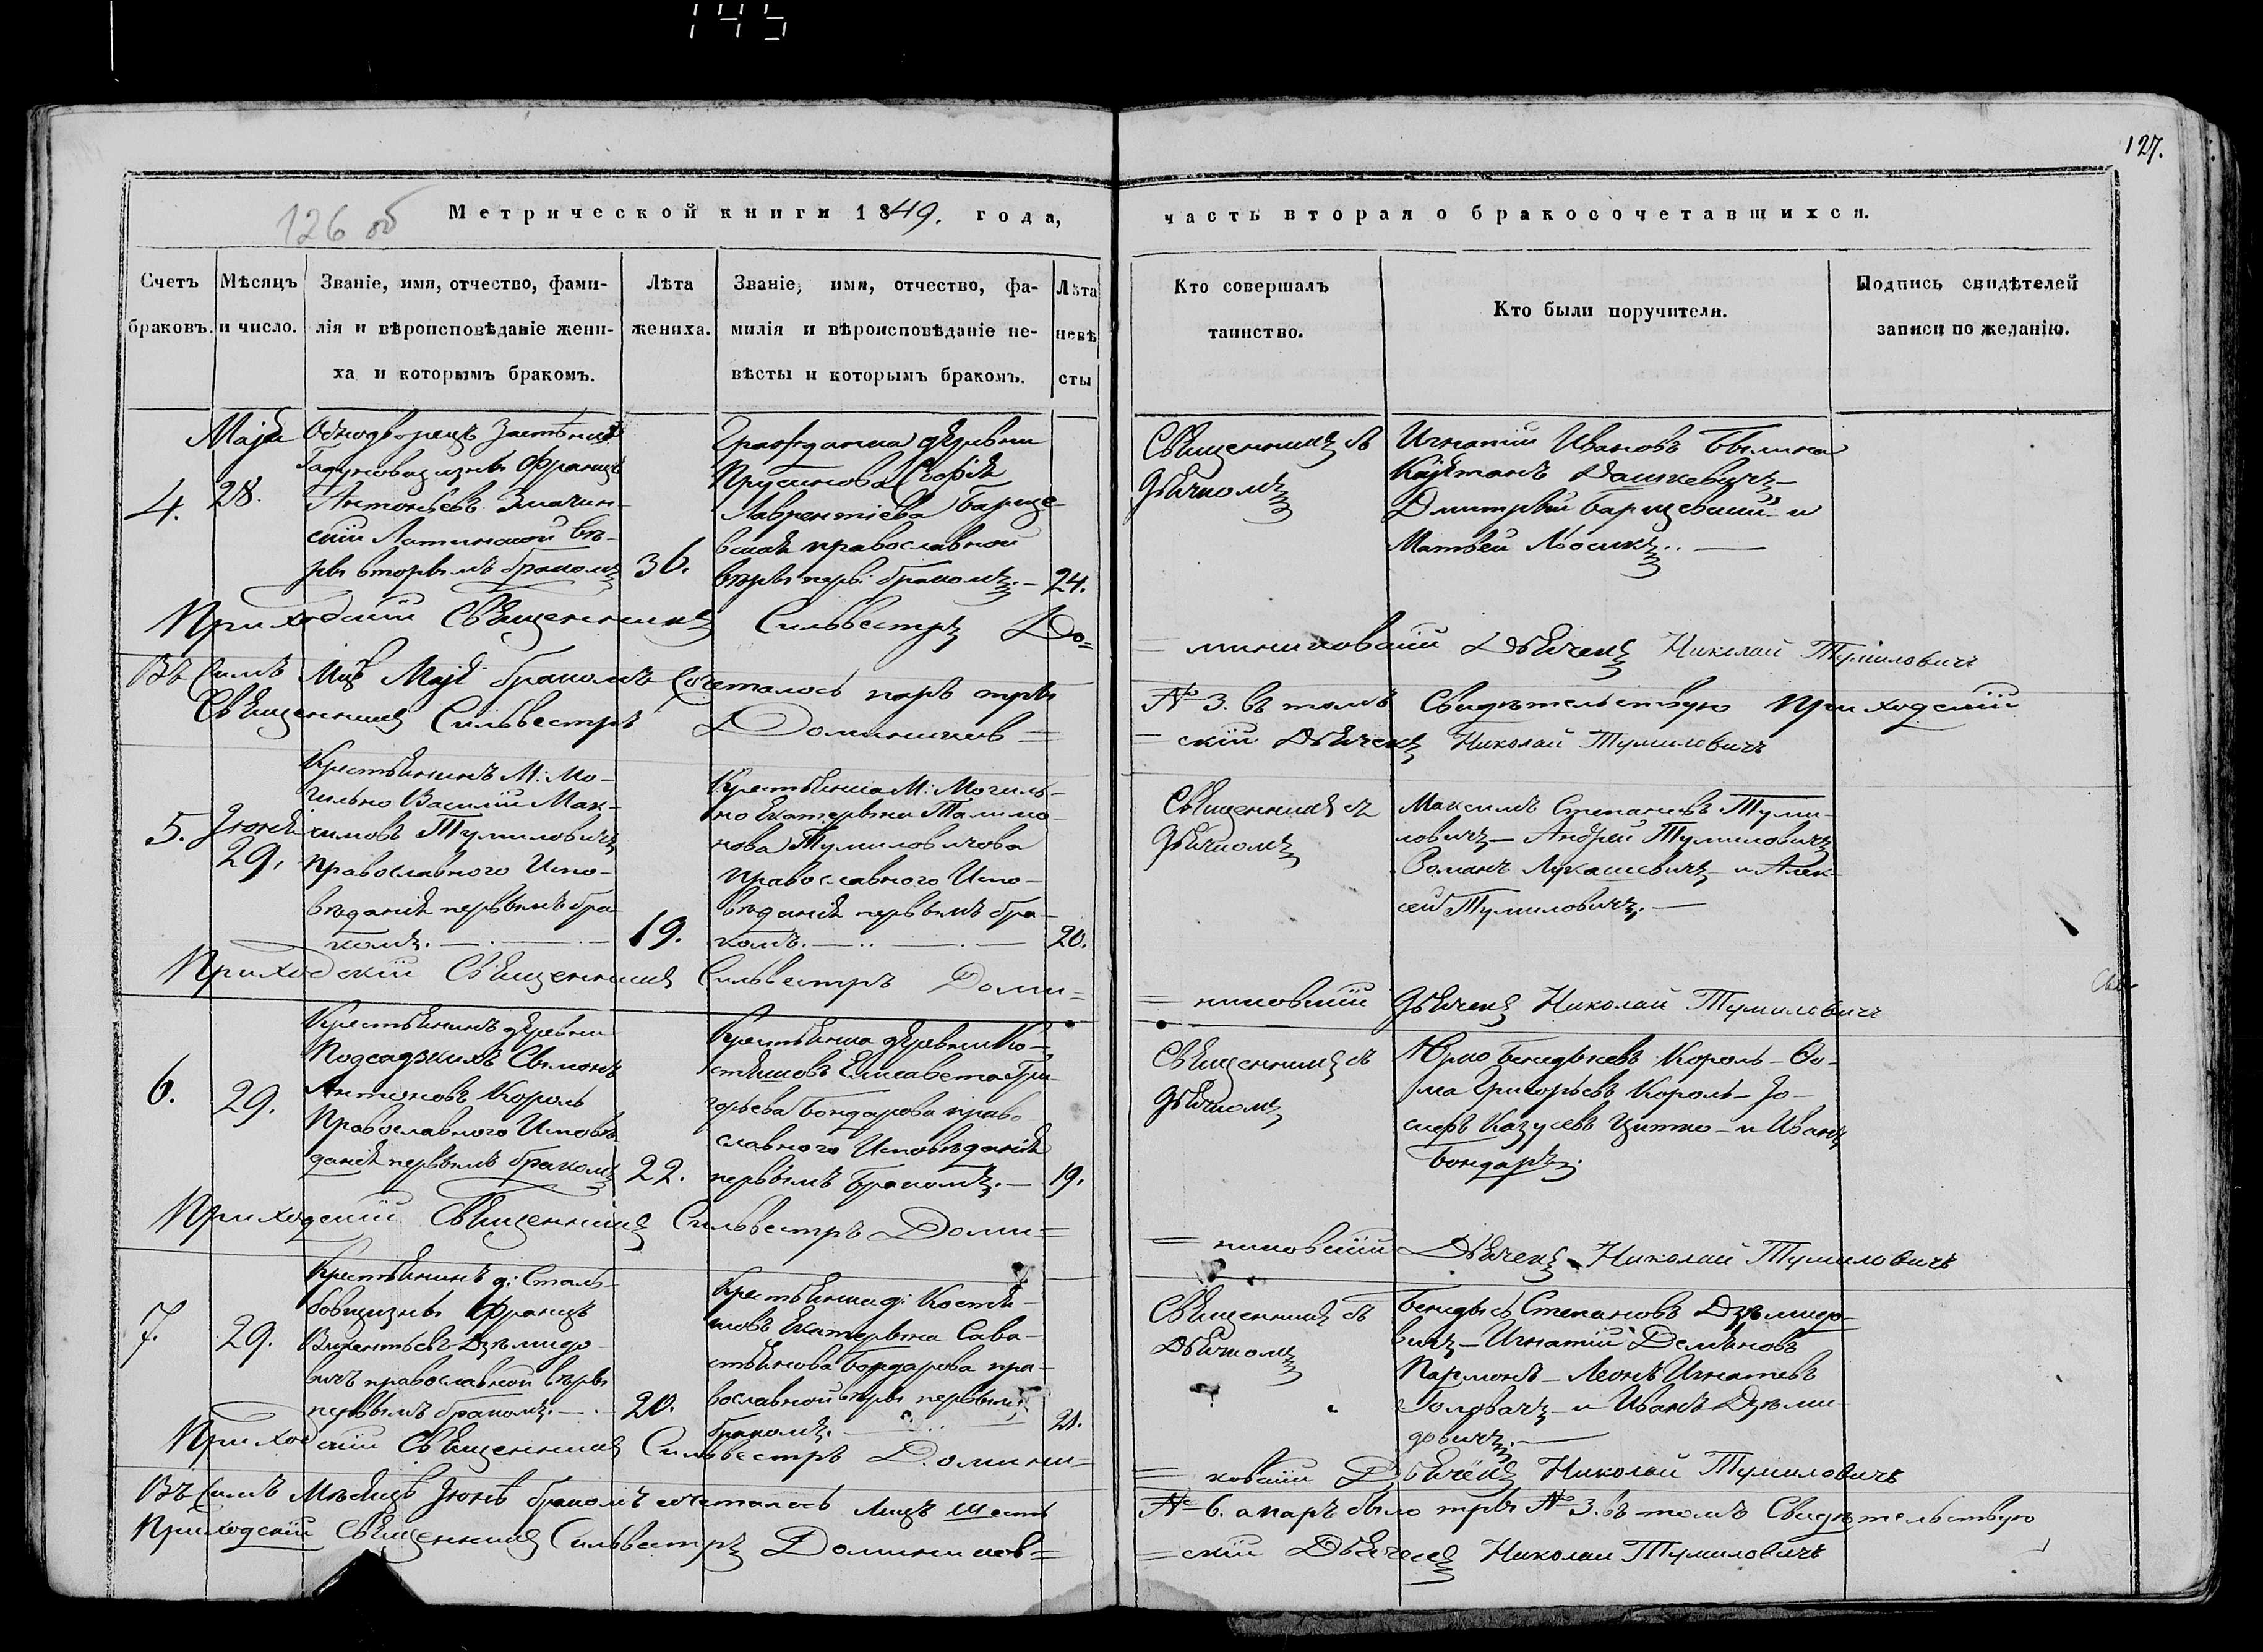 145
127.
126 об
Метрической книги 1849. года,
часть вторая о бракосочетавшихся.
Счетъ браковъ.
Мѣсяцъ и число.
Званіе, имя, отчество, фами-
лія и вѣроисповѣданіе жени-
ха и которымъ бракомъ.
Лѣта
жениха.
Званіе, имя, отчество, фа-
милія и вѣроисповѣданіе не-
вѣсты и которымъ бракомъ.
Лѣта
невѣ
сты
Кто совершалъ
таинство.
Кто были поручители.
Подпись свидѣтелей
записи по желанію.
4.
Маія
28.
Однодворецъ
Францъ
Антоньевъ
Латинской вѣ-
ры вторымъ бракомъ
36.
Гражданка деревни
Прусинова Софія
Лаврентіева Барще-
вская православной
вѣры перв: бракомъ. —
24.
Священникъ съ
дьячкомъ
Игнатій Ивановъ Былина
Каетанъ Дашкевичъ —
Дмитрый Барщевскій и
Матвей Лосикъ.. —
Приходскій Священникъ Сильвестръ До=
= миниковскій Дьячекъ Николай Тумиловичъ
Въ Симъ Мцѣ Маіѣ бракомъ Сочеталось паръ тры
№ 3. въ томъ Свидѣтельствую Приходскій
Священникъ Сильвестръ Домиников=
= скій Дьячекъ Николай Тумиловичъ
5.
Іюня
29.
Крестьянинъ М: Мо-
гильно Василій Мак-
симовъ Тумиловичъ
Православного Испо-
вѣданія первымъ бра-
комъ. —
19.
Крестьянка М: Могиль-
но Екатерына
нова Тумиловичова
Православного Испо-
вѣданія первымъ бра-
комъ. —
20.
Священникъ съ
дьячкомъ
Максимъ Степановъ Туми-
ловичъ — Андрей Тумиловичъ
Романъ Лукашевичъ — и Алек-
сей Тумиловичъ. —
Приходскій Священникъ Сильвестръ Доми=
= никовскій Дьячекъ Николай Тумиловичъ
6.
29.
Крестьянинъ деревни
Подсадзкихъ Сымонъ
Антоновъ Король
Православного Исповѣ
данія первымъ бракомъ
22.
Крестьянка деревни Ко-
стяшовъ Елисавета Гри-
горьева Бондарова право
славного Исповѣданія
первымъ бракомъ. —
19.
Священникъ съ
дьячкомъ
Юрко Бенедыкевъ Король — Ѳо-
ма Григорьевъ Король — Іо-
сифъ Цитко — и Иванъ
Бондаръ.
Приходскій Священникъ Сильвестръ Доми=
= никовскій Дьячекъ Николай Тумиловичъ
7.
29.
Крестьянинъ д: Столь-
бовщизны Францъ
Викентьевъ Дзѣмидо-
вичъ православной вѣры
первымъ бракомъ. —
20.
Крестьянка д: Костя-
шовъ Екатерына Сава-
стьянова Бондарова пра-
вославной вѣры первымъ
бракомъ.
21.
Священникъ съ
Дьячкомъ
Бенедыкъ Степановъ Дзѣмидо-
вичъ — Игнатій Демьяновъ
Пармонъ — Леонъ Игнатевъ
Головачъ — и Иванъ Дзѣми-
довичъ. —
Приходскій Священникъ Сильвестръ Домини=
= ковскій Дьячекъ Николай Тумиловичъ
Въ Симъ Мѣсяцѣ Іюнѣ бракомъ сочеталось Лицъ шесть
№ 6. а паръ было тры № 3. въ томъ Свидѣтельствую
Приходскій Священникъ Сильвестръ Домиников=
= скій Дьячекъ Николай Тумиловичъ